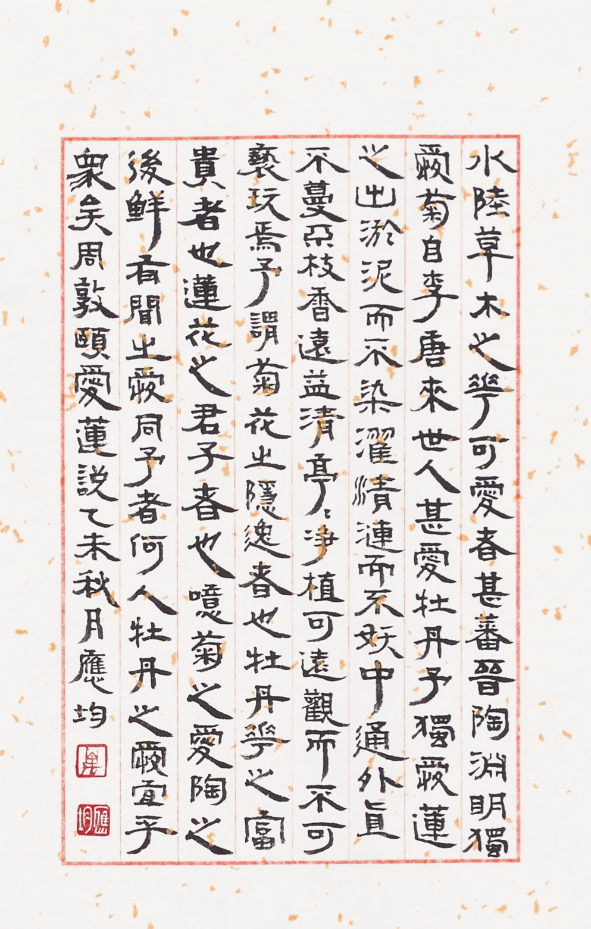 水陸草木之華可愛者甚蕃晉陶淵明獨
愛菊自李唐來世人甚愛牡丹予獨愛蓮
之出淤泥而不染濯清漣而不妖中通外直
不蔓不枝香遠益清亭〻淨植可遠觀而不可
褻玩焉予謂菊花之隱逸者也牡丹華之富
貴者也蓮花之君子者也噫菊之愛陶之
後鮮有聞之愛同予者何人牡丹之愛宜乎
衆矣周敦頤愛蓮說乙未秋月應均
應均